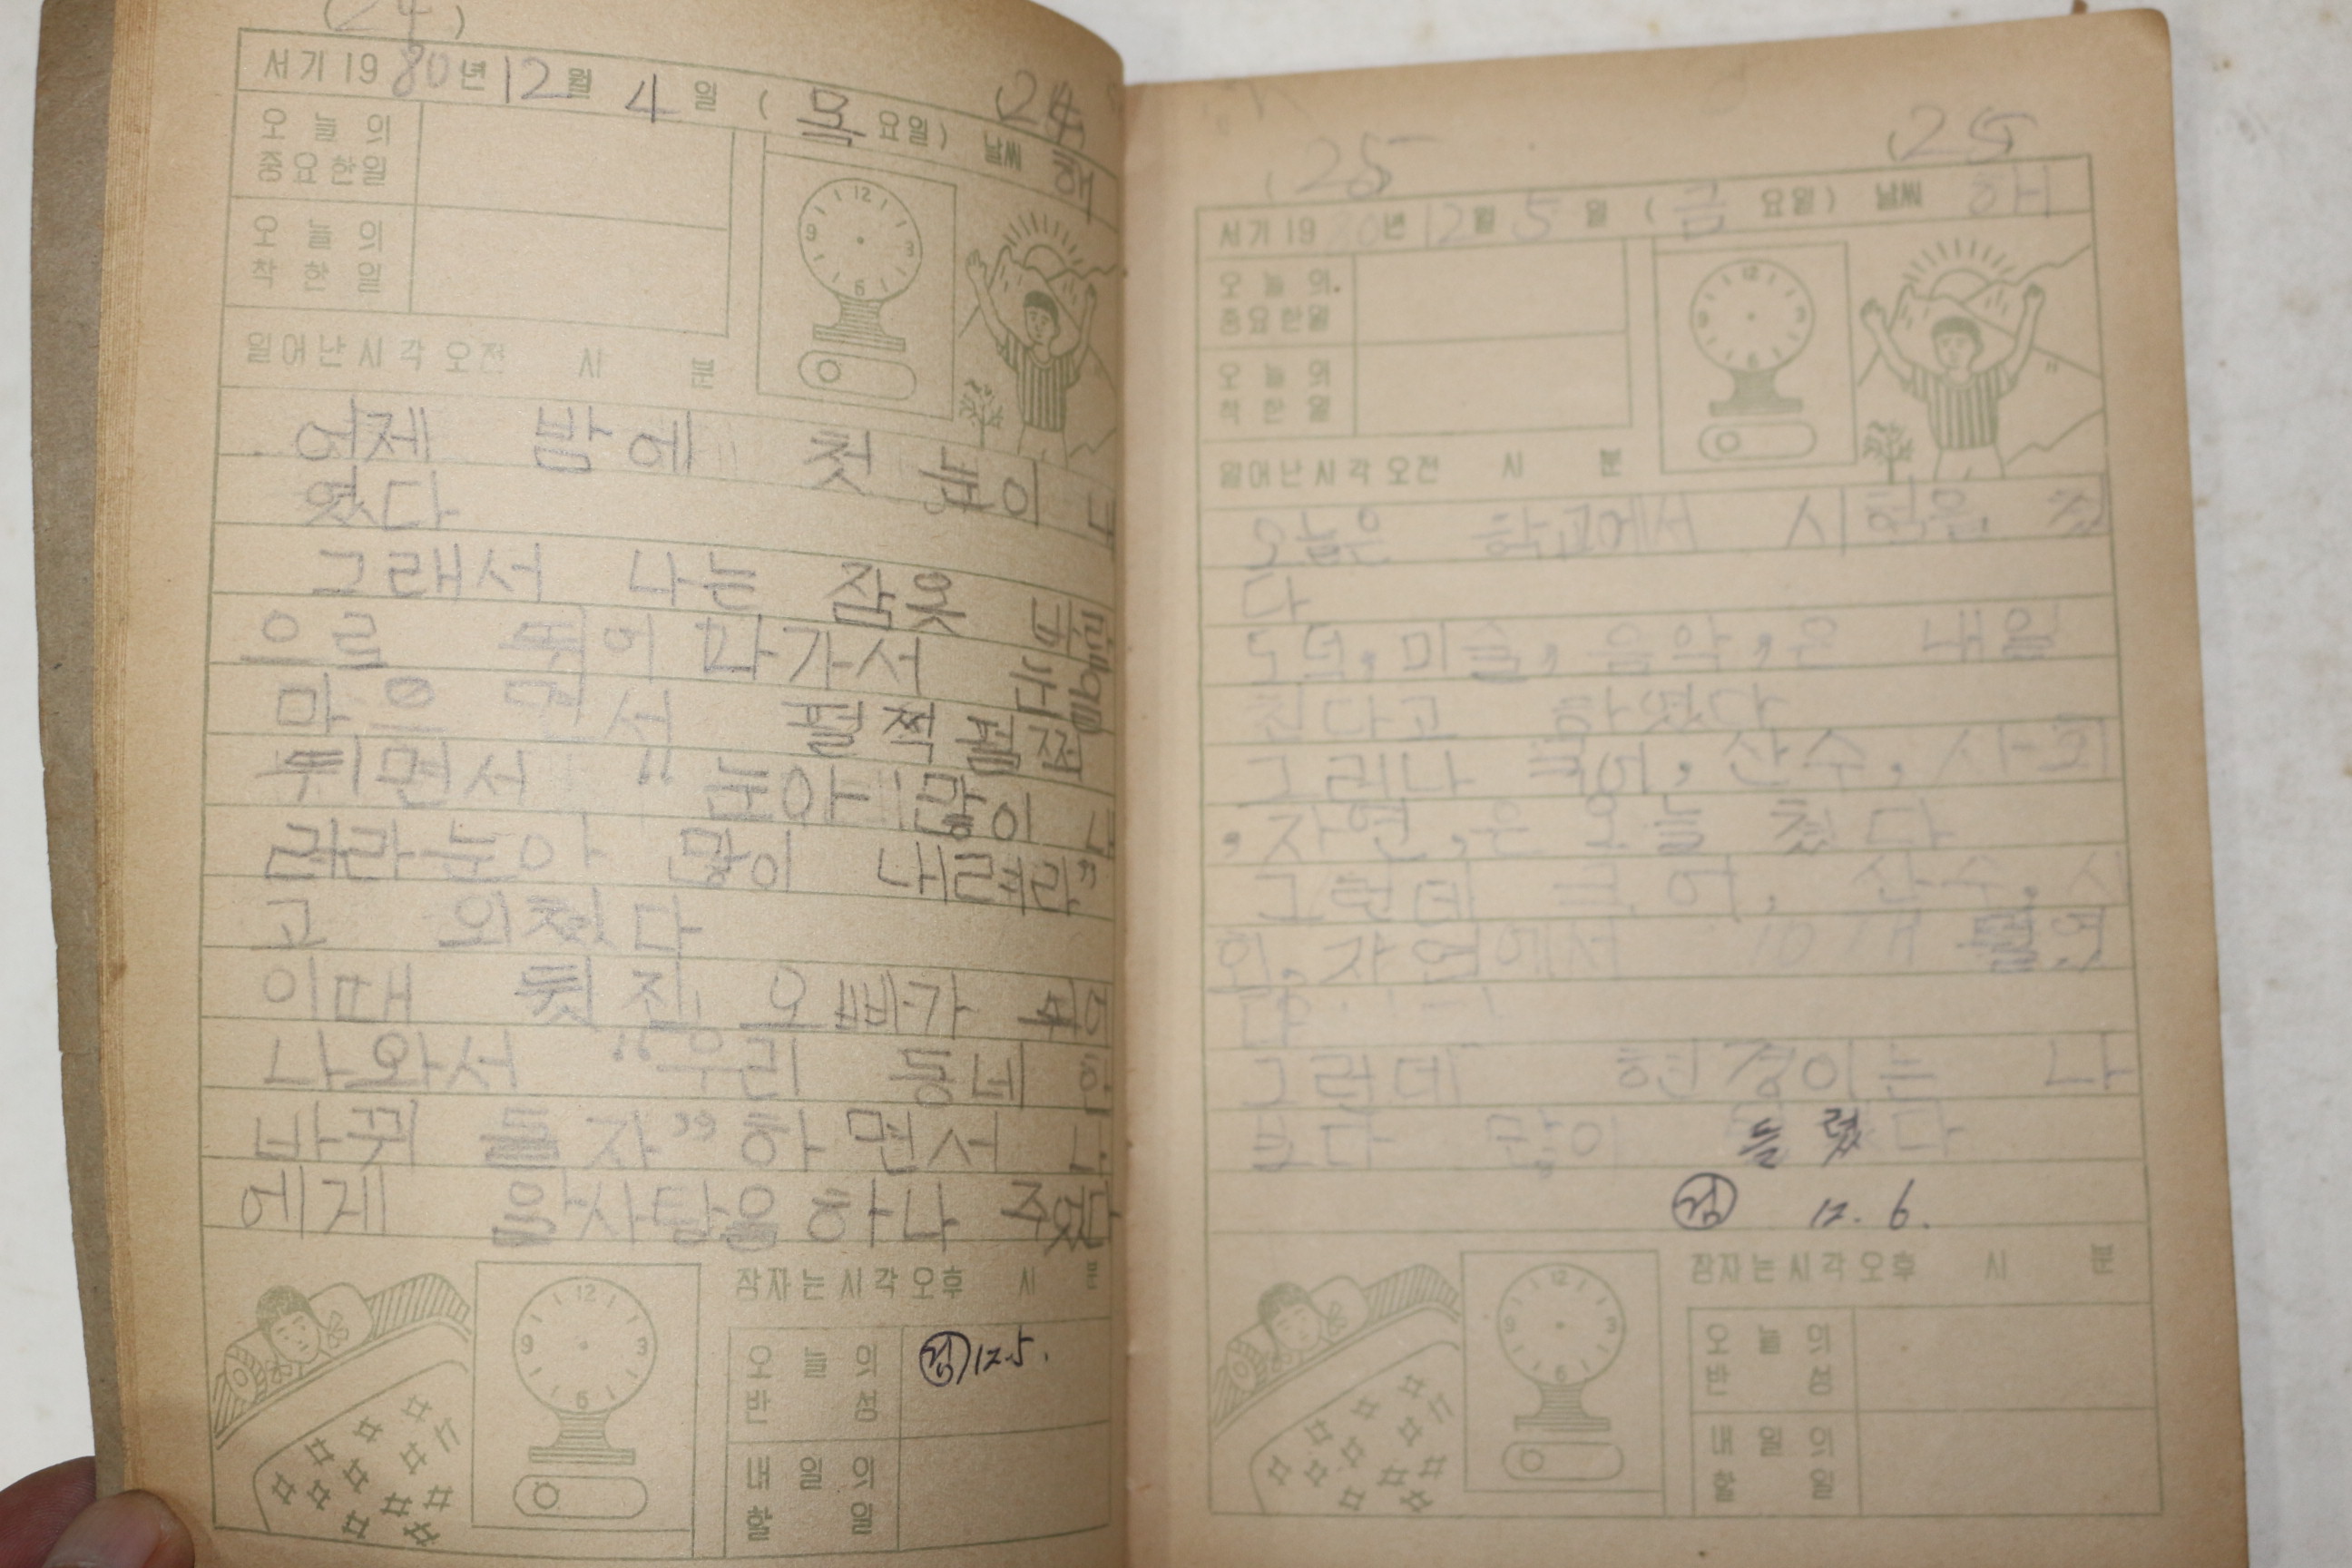 (24)
서기 1980년 12월 4일 (목요일) 날씨 해
24
오늘의
중요한일
오늘의
착한일
12
3
6
9
일어난시각 오전 시 분
어제 밤에 첫 눈이 내
렸다
그래서 나는 잠옷 바람
으로 뛰어 나가서 눈을
마으면서 펄쩍펄쩍
뛰면서 "눈아 많이 내
려라 눈아 많이 내려라"
고 외쳤다
이때 뒷집 오빠가 뛰어
나와서 "우리 동네 한
바퀴 돌자" 하면서 나
에게 알사탕을 하나 주었다
12
3
6
9
잠자는시각 오후 시 분
오늘의
반성
검 12.5.
내일의
할일
(25)
(25
서기 1980년 12월 5일 (금요일) 날씨 해
오늘의
중요한일
오늘의
착한일
12
3
6
9
일어난시각 오전 시 분
오늘은 학교에서 시험을 쳤
다
도덕, 미술, 음악,은 내일
친다고 하였다
그러나 산수, 사회
,자연,은 오늘 쳤다
그런데 산수, 사
회, 자연에서 10개
다
그런데 현경이는 나
보다 많이 들렸다
검 12.6.
12
3
6
9
잠자는시각 오후 시 분
오늘의
반성
내일의
할일